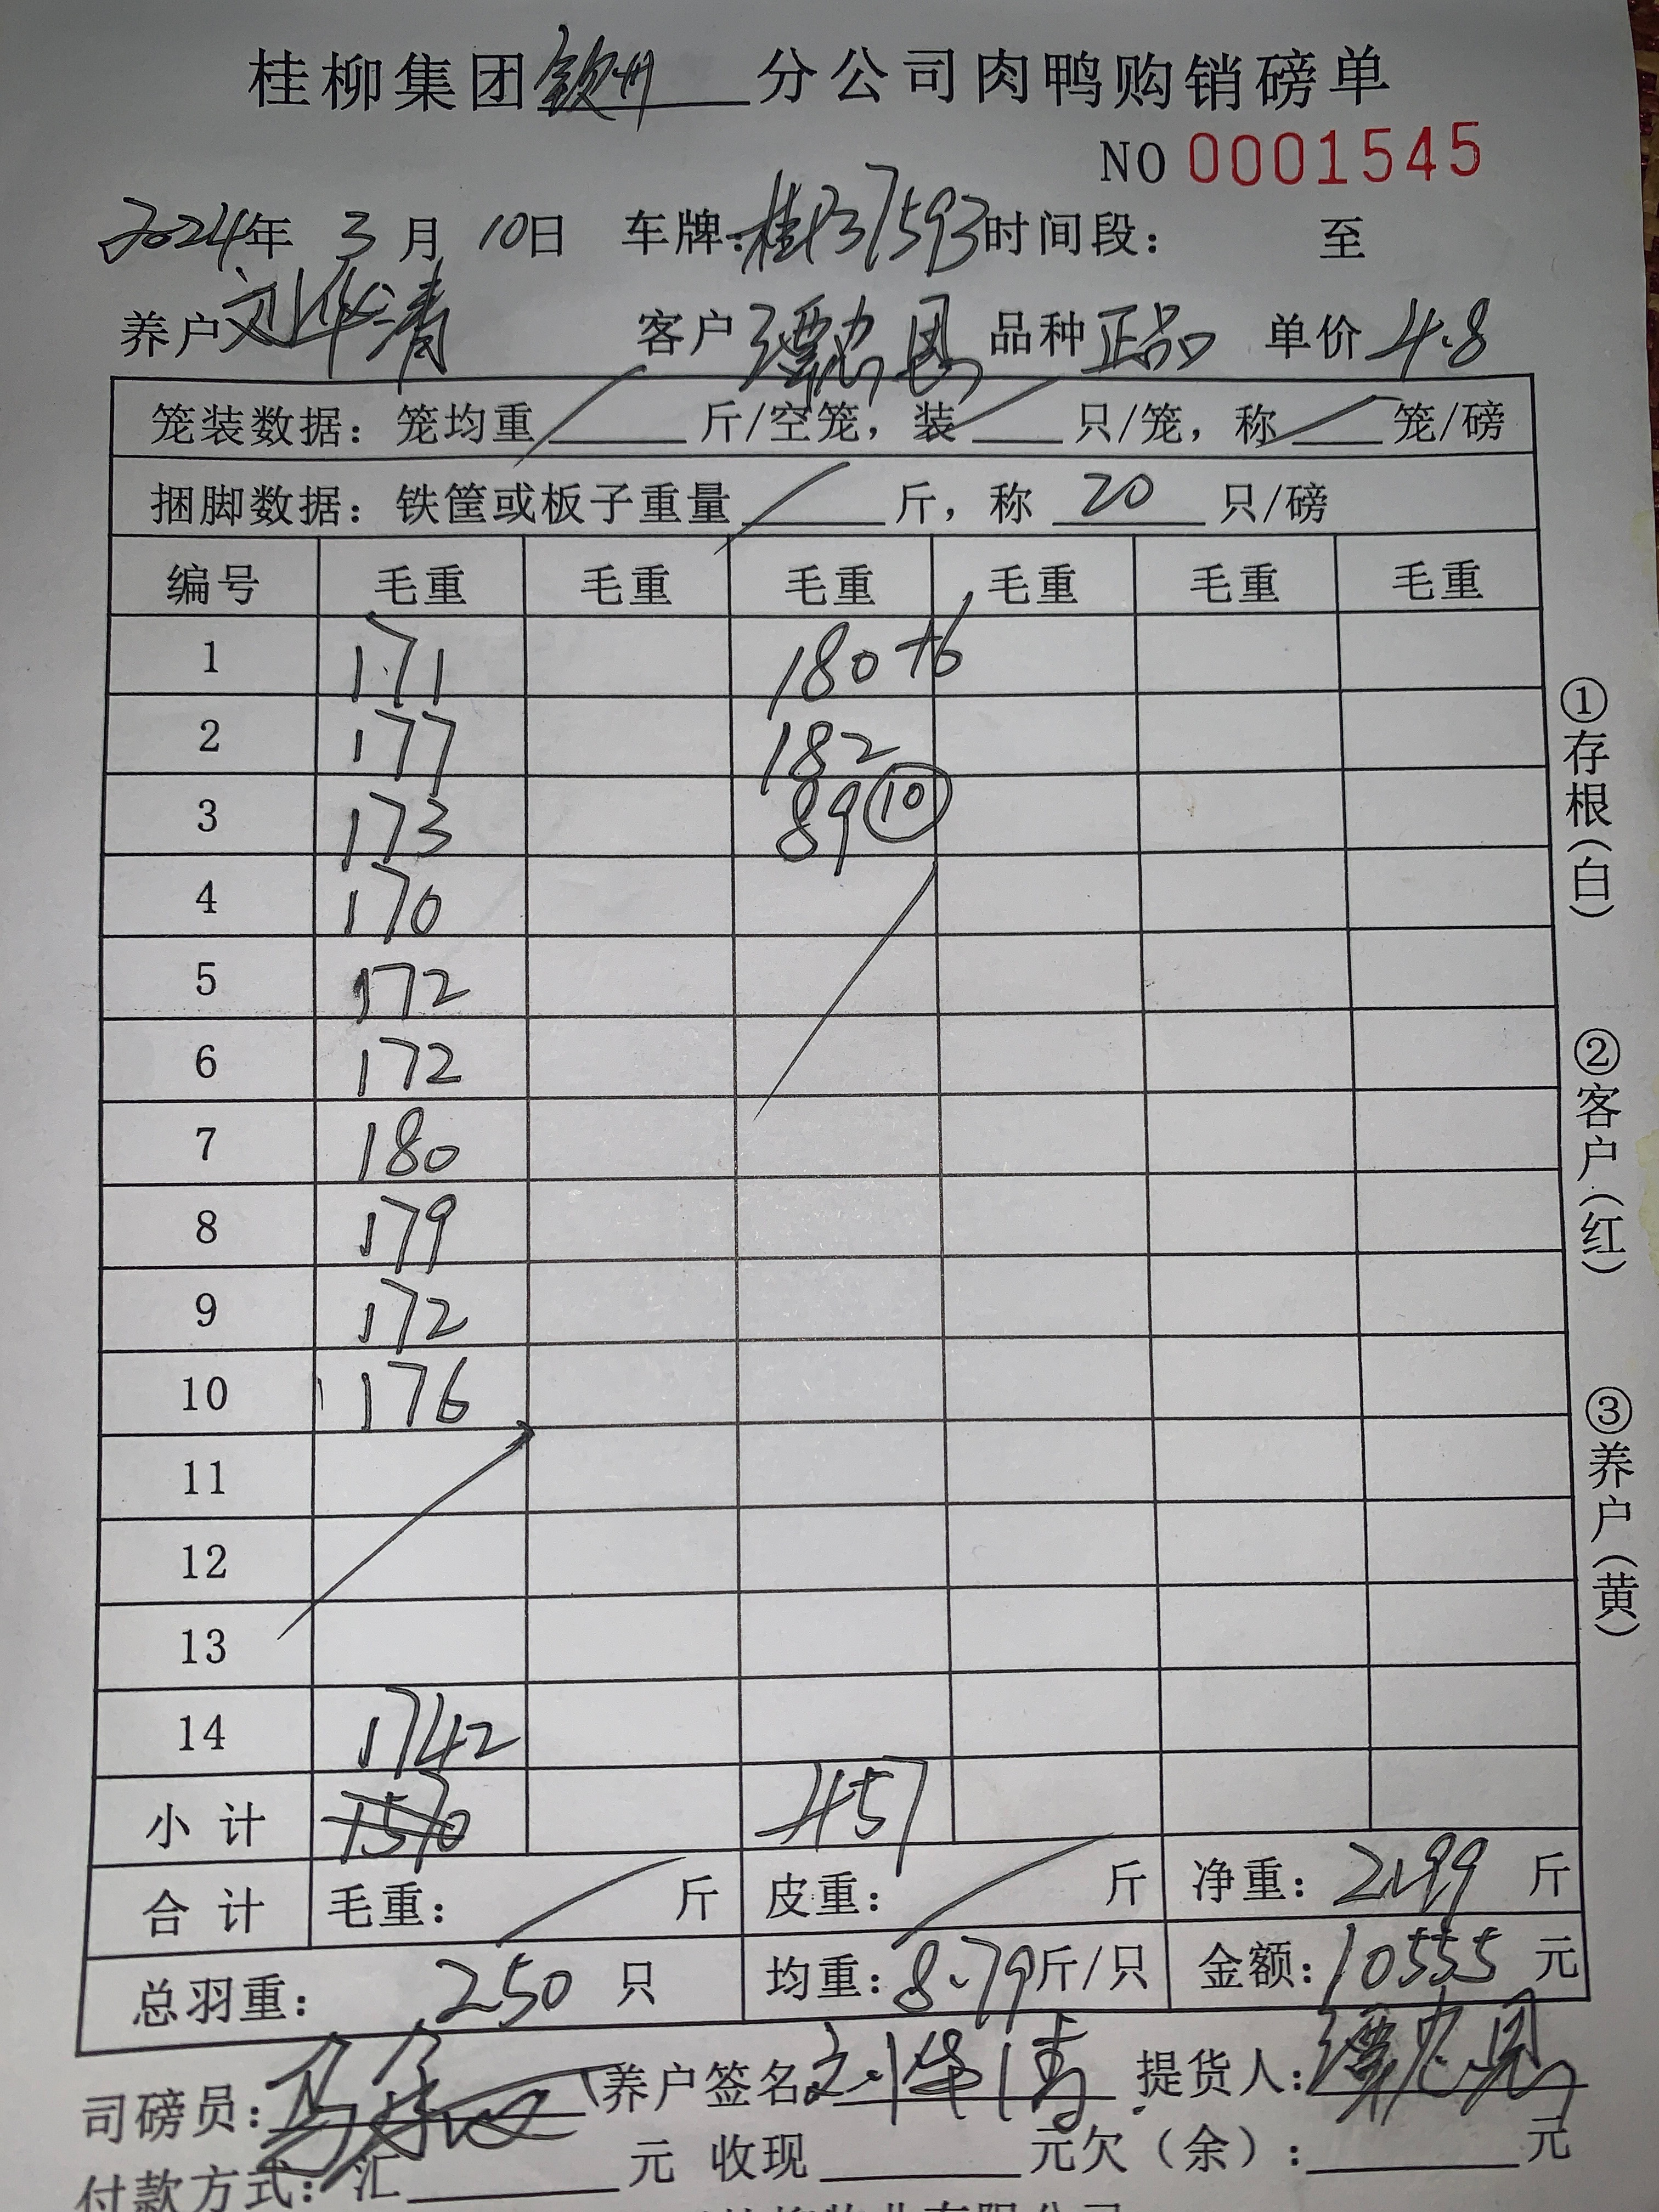 桂柳集团钦州分公司肉鸭购销磅单
NO 0001545
2024年 3月 10日 车牌:桂 37593 时间段: 至
养户 刘华清 客户 谭忠恩 品种 正品 单价 4.8
笼装数据: 笼均重 斤/空笼, 装 只/笼, 称 笼/磅
捆脚数据: 铁筐或板子重量 斤, 称 20 只/磅
编号 毛重 毛重 毛重 毛重 毛重 毛重
1 171 180+6
2 177 182
3 173 89 ⑩
4 170
5 172
6 172
7 180
8 179
9 172
10 176
11
12
13
14 1742
小计 1570 457
合计 毛重: 斤 皮重: 斤 净重: 2199 斤
总羽重: 250 只 均重: 8.79 斤/只 金额: 10555 元
司磅员: 养户签名 刘华清 提货人: 谭忠恩
付款方式: 汇 元 收现 元 欠(余): 元
①存根(白)
②客户(红)
③养户(黄)